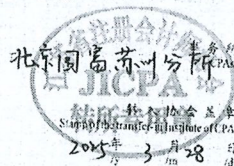 注册会计
北京国富苏州分所 事务
JICPA
转所专用
转入协会盖章
Stamp of the transfer-in Institute of CPA
2025年3月28